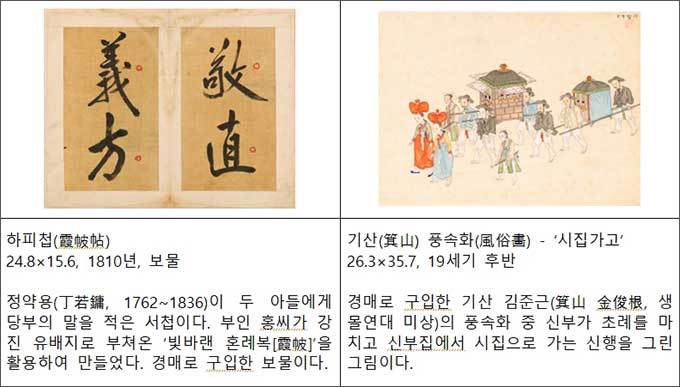 敬直
義方
하피첩(霞帔帖)
24.8×15.6, 1810년, 보물
정약용(丁若鏞, 1762~1836)이 두 아들에게
당부의 말을 적은 서첩이다. 부인 홍씨가 강
진 유배지로 부쳐온 ‘빛바랜 혼례복[霞帔]’을
활용하여 만들었다. 경매로 구입한 보물이다.
기산(箕山) 풍속화(風俗畵) - ‘시집가고’
26.3×35.7, 19세기 후반
경매로 구입한 기산 김준근(箕山 金俊根, 생
몰연대 미상)의 풍속화 중 신부가 초례를 마
치고 신부집에서 시집으로 가는 신행을 그린
그림이다.